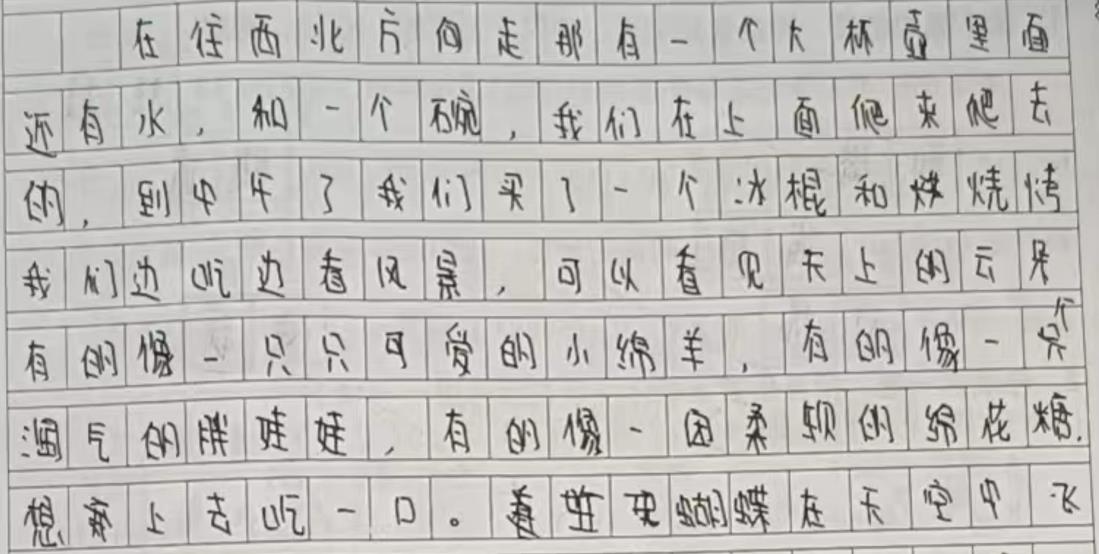 在往西北方向走那有一个大杯壶里面
还有水，和一个碗，我们在上面爬来爬去
的，到中午了我们买了一个冰棍和烧烤
我们边吃边看风景，可以看见天上的云朵
有的像一只只可爱的小绵羊，有的像一个
淘气的胖娃娃，有的像一团柔软的绵花糖.
想上去吃一口。蝴蝶在天空中飞